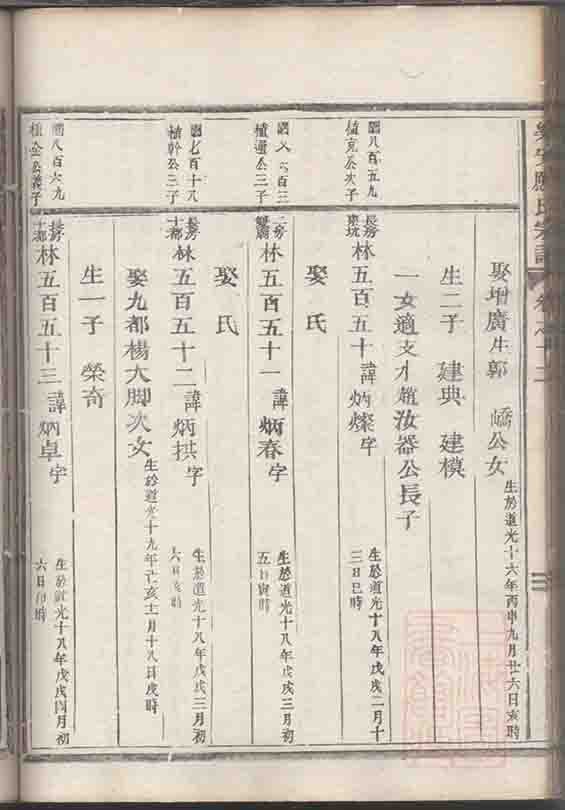 應氏宗譜 卷之十二
娶增廣生郭 嶠公女 生於道光十六年丙申九月廿六日亥時
生二子 建典 建模
一女適文才趙汝器公長子
國八百五九
植克公次子
長房
東坑
林五百五十 諱炳燦字 生於道光十八年戊戌二月十
三日巳時
娶氏
植選公三子
二房
林五百五十一 諱炳春字 生於道光十八年戊戌三月初
五日寅時
娶氏
國七百十八
植幹公三子
長房
十都
林五百五十二 諱炳拱字 生於道光十八年戊戌三月初
六日亥時
娶九都楊大脚次女 生於道光十九年己亥十一月十八日戌時
生一子 榮奇
國八百六九
植金公義子
長房
十都
林五百五十三 諱炳卓字 生於道光十八年戊戌四月初
六日卯時